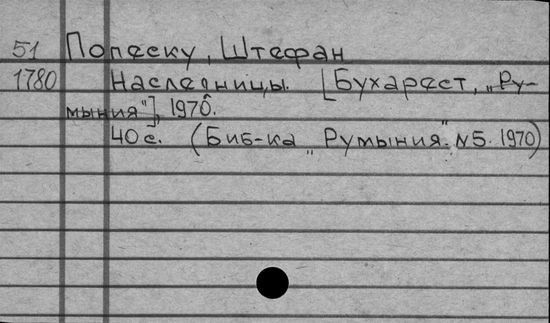 51 Попеску, Штефан
1780 Наследницы. [Бухарест, „Ру-
мыния"], 1970.
40 с. (Биб-ка „Румыния". №5. 1970)